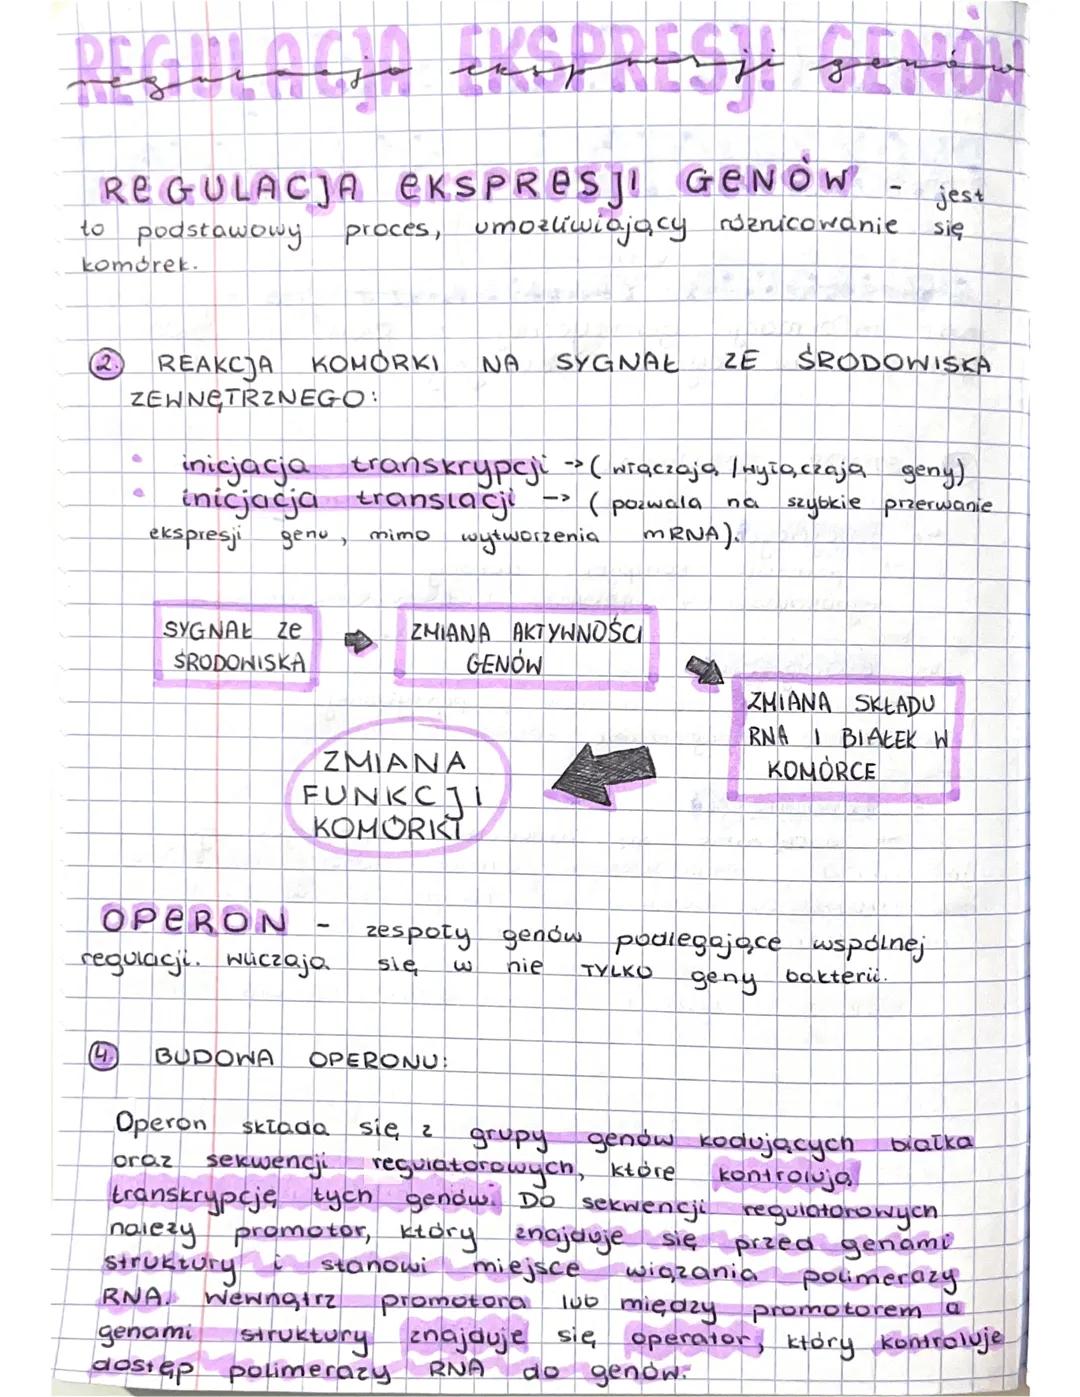 REGULACJA EKSPRESJI GENÓW
regulacja ekspresji genów
REGULACJA EKSPRESJI GENÓW - jest
to podstawowy proces, umożliwiający różnicowanie się
komórek.
2. REAKCJA KOMÓRKI NA SYGNAŁ ZE ŚRODOWISKA
ZEWNĘTRZNEGO:
• inicjacja transkrypcji -> ( włączają / wyłączają geny)
• inicjacja translacji -> ( pozwala na szybkie przerwanie
ekspresji genu, mimo wytworzenia mRNA).
SYGNAŁ ZE
ŚRODOWISKA
ZMIANA AKTYWNOŚCI
GENÓW
ZMIANA SKŁADU
RNA I BIAŁEK W
KOMÓRCE
ZMIANA
FUNKCJI
KOMÓRKI
OPERON - zespoły genów podlegające wspólnej
regulacji. Wliczają się w nie TYLKO geny bakterii.
4. BUDOWA OPERONU:
Operon składa się z grupy genów kodujących białka
oraz sekwencji regulatorowych, które kontrolują
transkrypcję tych genów. Do sekwencji regulatorowych
należy promotor, który znajduje się przed genami
struktury i stanowi miejsce wiązania polimerazy
RNA. Wewnątrz promotora lub między promotorem a
genami struktury znajduje się operator, który kontroluje
dostęp polimerazy RNA do genów.